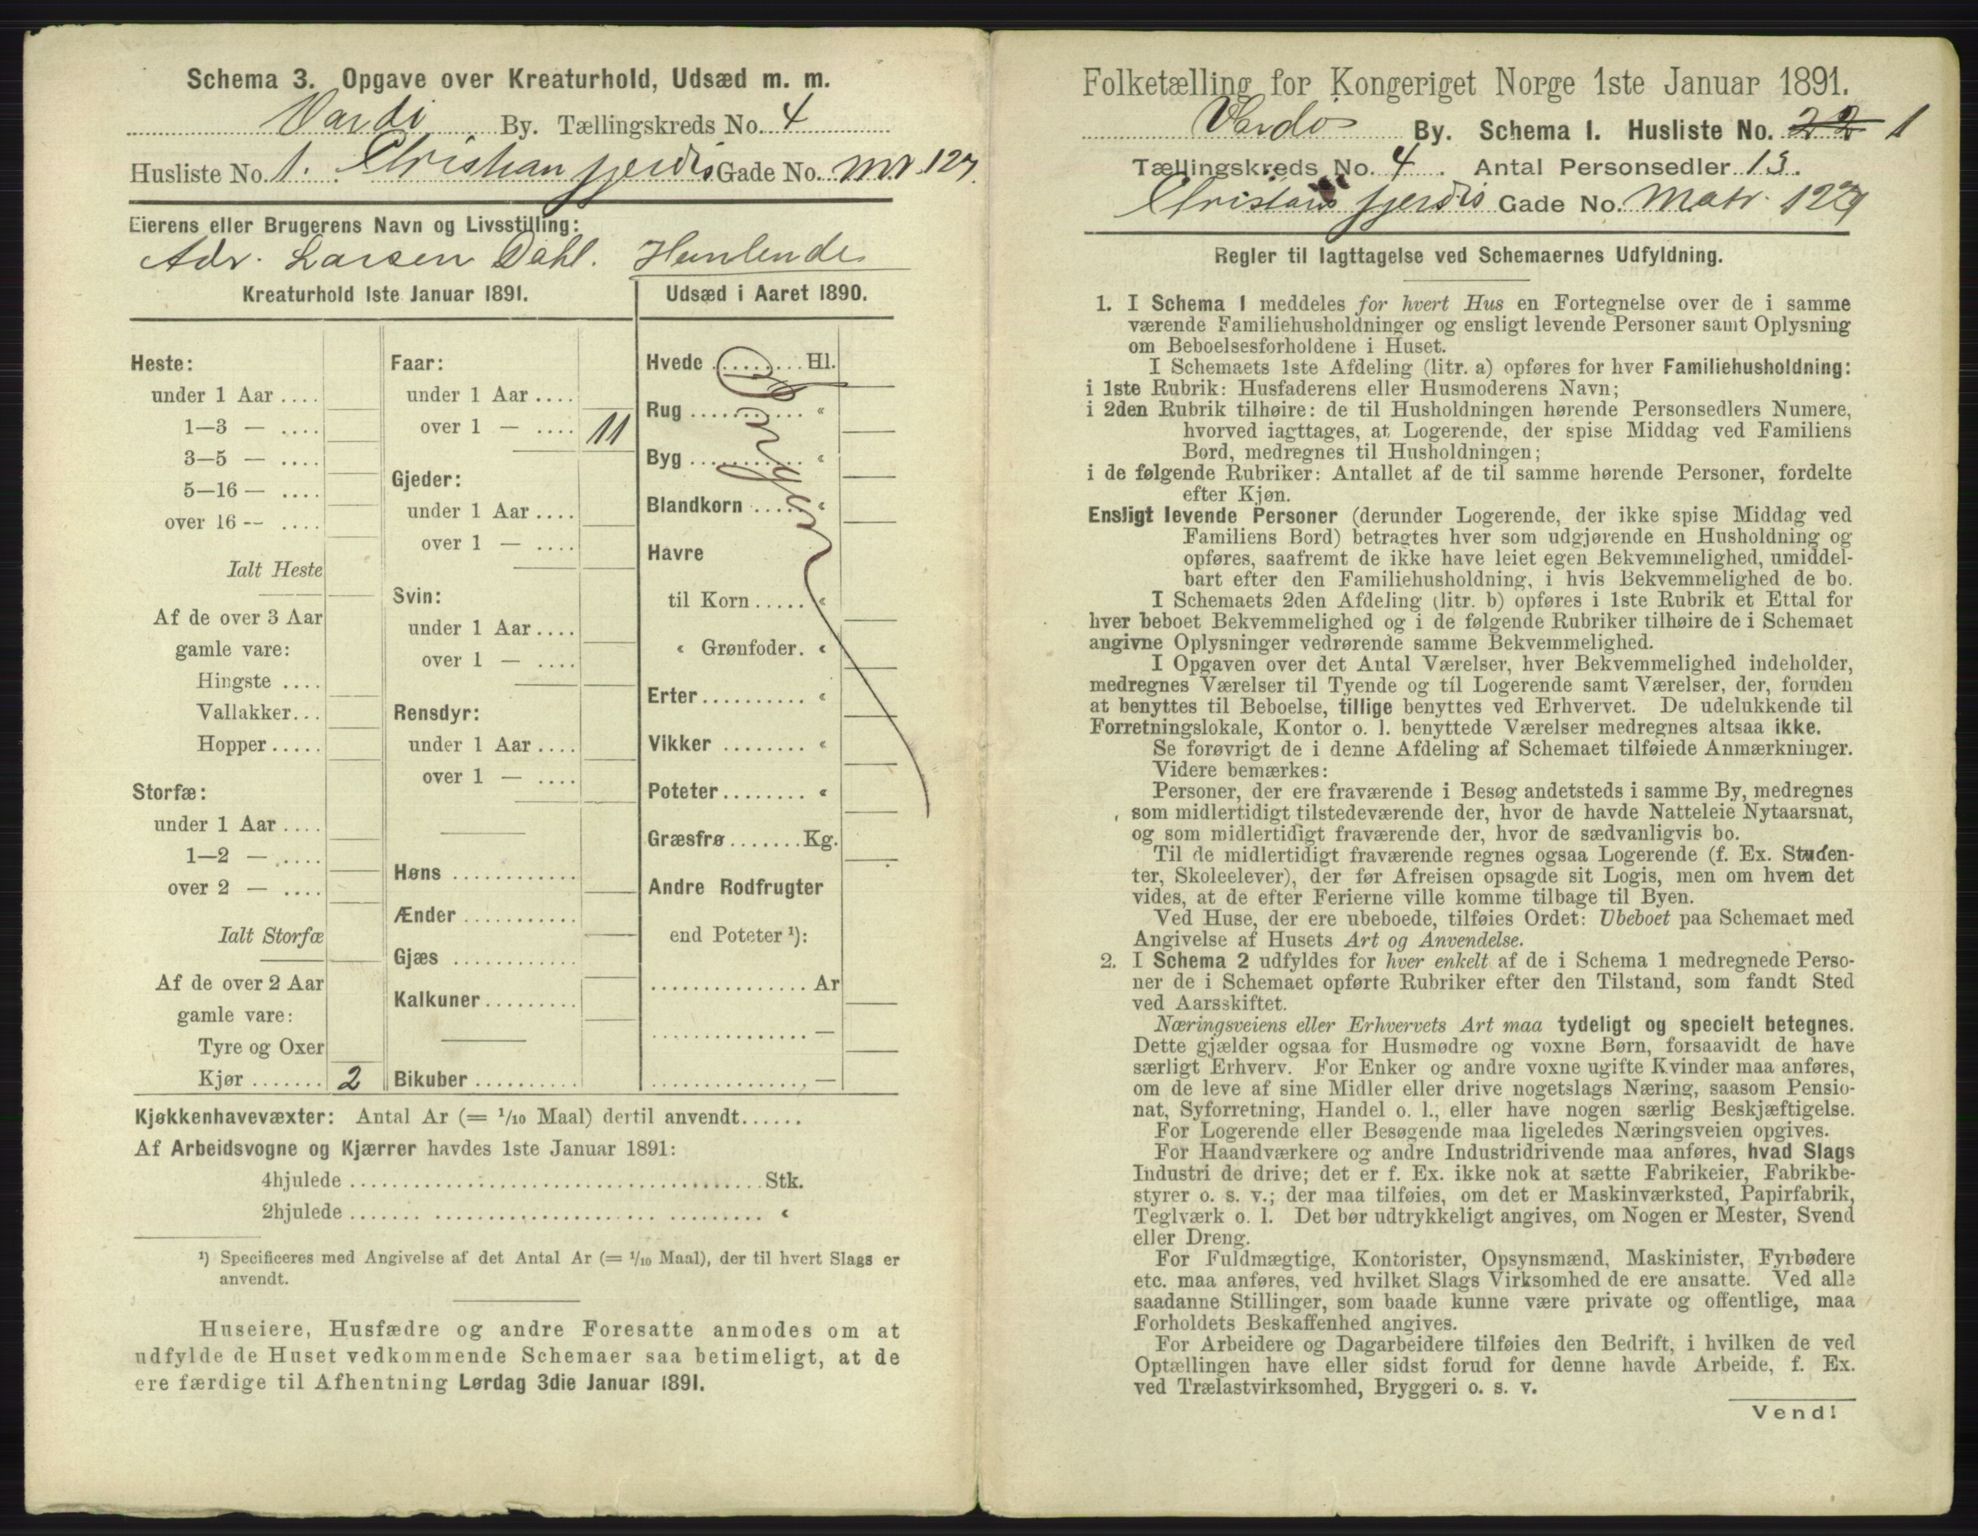 Schema 3. Opgave over Kreaturhold, Udsæd m. m.
Vardö By. Tællingskreds No. 4
Husliste No. 1. Christian fjerdis Gade No. Mt. 127.
Eierens eller Brugerens Navn og Livsstilling:
Adr. Larsen Dahl. Hanlende
Kreaturhold 1ste Januar 1891.
Udsæd i Aaret 1890.
Heste:
under 1 Aar ....
1—3 — ....
3—5 — ....
5—16 — ....
over 16 -- ....
Ialt Heste
Af de over 3 Aar
gamle vare:
Hingste ....
Vallakker...
Hopper.....
Storfæ:
under 1 Aar ....
1—2 — ....
over 2 — ....
Ialt Storfæ
Af de over 2 Aar
gamle vare:
Tyre og Oxer
Kjør ....... 2
Faar:
under 1 Aar ....
over 1 — .... 11
Gjeder:
under 1 Aar ....
over 1 — ....
Svin:
under 1 Aar ....
over 1 — ....
Rensdyr:
under 1 Aar ....
over 1 — ....
Høns ............
Ænder ...........
Gjæs ............
Kalkuner.........
Bikuber ..........
Hvede ......... Hl.
Rug ........... «
Byg ........... «
Blandkorn ..... «
Havre
til Korn ..... «
« Grønfoder. «
Erter.......... «
Vikker ........ «
Poteter........ «
Græsfrø .......Kg.
Andre Rodfrugter
end Poteter ¹):
............... Ar
............... —
............... —
Kjøkkenhavevæxter: Antal Ar (= 1/10 Maal) dertil anvendt......
Af Arbeidsvogne og Kjærrer havdes 1ste Januar 1891:
4hjulede ........................................ Stk.
2hjulede ....... ..................... ......... «
¹) Specificeres med Angivelse af det Antal Ar (= 1/10 Maal), der til hvert Slags er
anvendt.
Huseiere, Husfædre og andre Foresatte anmodes om at
udfylde de Huset vedkommende Schemaer saa betimeligt, at de
ere færdige til Afhentning Lørdag 3die Januar 1891.
Folketælling for Kongeriget Norge 1ste Januar 1891.
Vardö By. Schema 1. Husliste No. 22 1
Tællingskreds No. 4. Antal Personsedler 13.
Christians fjerdis Gade No. Matr. 127
Regler til Iagttagelse ved Schemaernes Udfyldning.
1. I Schema 1 meddeles for hvert Hus en Fortegnelse over de i samme
værende Familiehusholdninger og ensligt levende Personer samt Oplysning
om Beboelsesforholdene i Huset.
I Schemaets 1ste Afdeling (litr. a) opføres for hver Familiehusholdning:
i 1ste Rubrik: Husfaderens eller Husmoderens Navn;
i 2den Rubrik tilhøire: de til Husholdningen hørende Personsedlers Numere,
hvorved iagttages, at Logerende, der spise Middag ved Familiens
Bord, medregnes til Husholdningen;
i de følgende Rubriker: Antallet af de til samme hørende Personer, fordelte
efter Kjøn.
Ensligt levende Personer (derunder Logerende, der ikke spise Middag ved
Familiens Bord) betragtes hver som udgjørende en Husholdning og
opføres, saafremt de ikke have leiet egen Bekvemmelighed, umiddel-
bart efter den Familiehusholdning, i hvis Bekvemmelighed de bo.
I Schemaets 2den Afdeling (litr. b) opføres i 1ste Rubrik et Ettal for
hver beboet Bekvemmelighed og i de følgende Rubriker tilhøire de i Schemaet
angivne Oplysninger vedrørende samme Bekvemmelighed.
I Opgaven over det Antal Værelser, hver Bekvemmelighed indeholder,
medregnes Værelser til Tyende og til Logerende samt Værelser, der, foruden
at benyttes til Beboelse, tillige benyttes ved Erhvervet. De udelukkende til
Forretningslokale, Kontor o. l. benyttede Værelser medregnes altsaa ikke.
Se forøvrigt de i denne Afdeling af Schemaet tilføiede Anmærkninger.
Videre bemærkes:
Personer, der ere fraværende i Besøg andetsteds i samme By, medregnes
som midlertidigt tilstedeværende der, hvor de havde Natteleie Nytaarsnat,
og som midlertidigt fraværende der, hvor de sædvanligvis bo.
Til de midlertidigt fraværende regnes ogsaa Logerende (f. Ex. Studen-
ter, Skoleelever), der før Afreisen opsagde sit Logis, men om hvem det
vides, at de efter Ferierne ville komme tilbage til Byen.
Ved Huse, der ere ubeboede, tilføies Ordet: Ubeboet paa Schemaet med
Angivelse af Husets Art og Anvendelse.
2. I Schema 2 udfyldes for hver enkelt af de i Schema 1 medregnede Perso-
ner de i Schemaet opførte Rubriker efter den Tilstand, som fandt Sted
ved Aarsskiftet.
Næringsveiens eller Erhvervets Art maa tydeligt og specielt betegnes.
Dette gjælder ogsaa for Husmødre og voxne Børn, forsaavidt de have
særligt Erhverv. For Enker og andre voxne ugifte Kvinder maa anføres,
om de leve af sine Midler eller drive nogetslags Næring, saasom Pensio-
nat, Syforretning, Handel o. l., eller have nogen særlig Beskjæftigelse.
For Logerende eller Besøgende maa ligeledes Næringsveien opgives.
For Haandværkere og andre Industridrivende maa anføres, hvad Slags
Industri de drive; det er f. Ex. ikke nok at sætte Fabrikeier, Fabrikbe-
styrer o. s. v.; der maa tilføies, om det er Maskinværksted, Papirfabrik,
Teglværk o. l. Det bør udtrykkeligt angives, om Nogen er Mester, Svend
eller Dreng.
For Fuldmægtige, Kontorister, Opsynsmænd, Maskinister, Fyrbødere
etc. maa anføres, ved hvilket Slags Virksomhed de ere ansatte. Ved alle
saadanne Stillinger, som baade kunne være private og offentlige, maa
Forholdets Beskaffenhed angives.
For Arbeidere og Dagarbeidere tilføies den Bedrift, i hvilken de ved
Optællingen have eller sidst forud for denne havde Arbeide, f. Ex.
ved Trælastvirksomhed, Bryggeri o. s. v.
Vend!